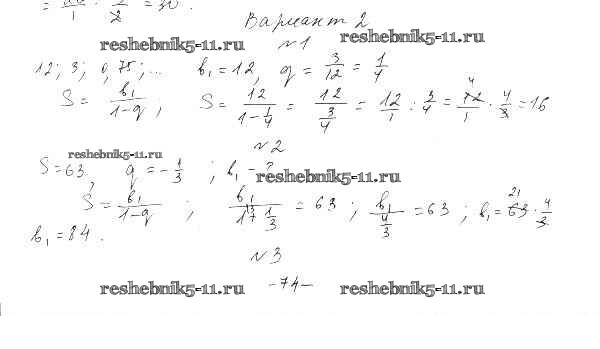 Вариант 2
reshebnik5-11.ru reshebnik5-11.ru
№1
12; 3; 0,75; ... b₁ = 12, q = 3/12 = 1/4
S = b₁/(1-q), S = 12/(1-1/4) = 12/(3/4) = 12/1 : 3/4 = 12/1 · 4/3 = 16
№2
reshebnik5-11.ru
S = 63, q = -1/3; b₁ - ?
reshebnik5-11.ru
S = b₁/(1-q); = 63; b₁/(4/3) = 63; b₁ = 63 · 4/3
b₁ = 84.
№3
-74-
reshebnik5-11.ru reshebnik5-11.ru